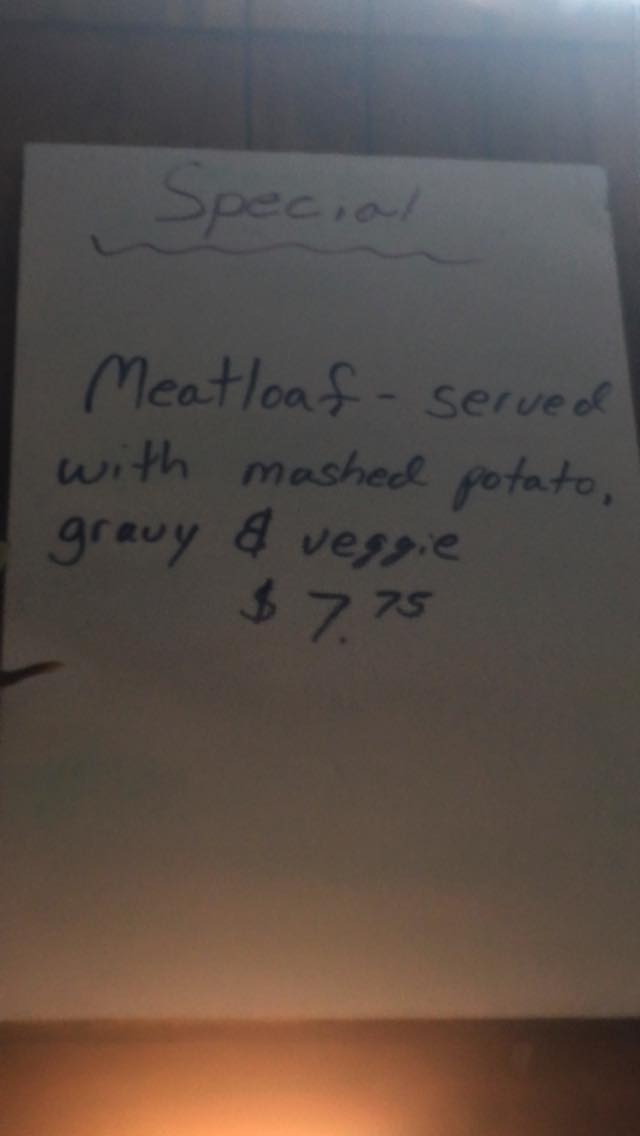 Special
Meatloaf - served
with mashed potato,
gravy & veggie
$ 7.75